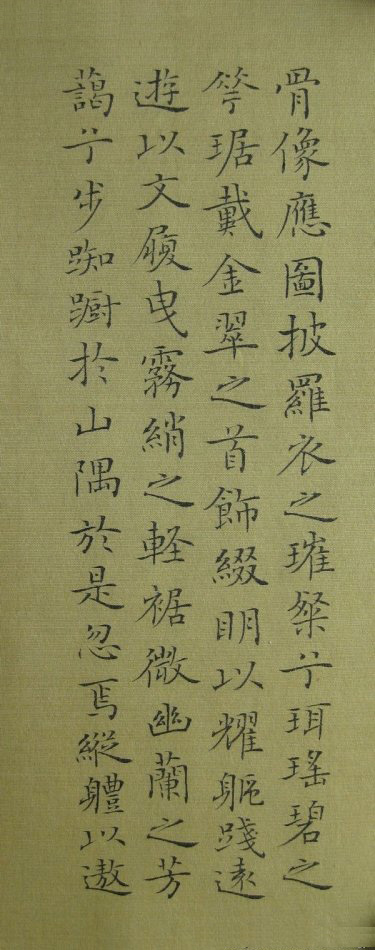 骨像應圖披羅衣之璀粲兮珥瑤碧之
華琚戴金翠之首飾綴明以耀軀踐遠
遊以文履曳霧綃之輕裾微幽蘭之芳
藹兮步踟躕於山隅於是忽焉縱體以遨